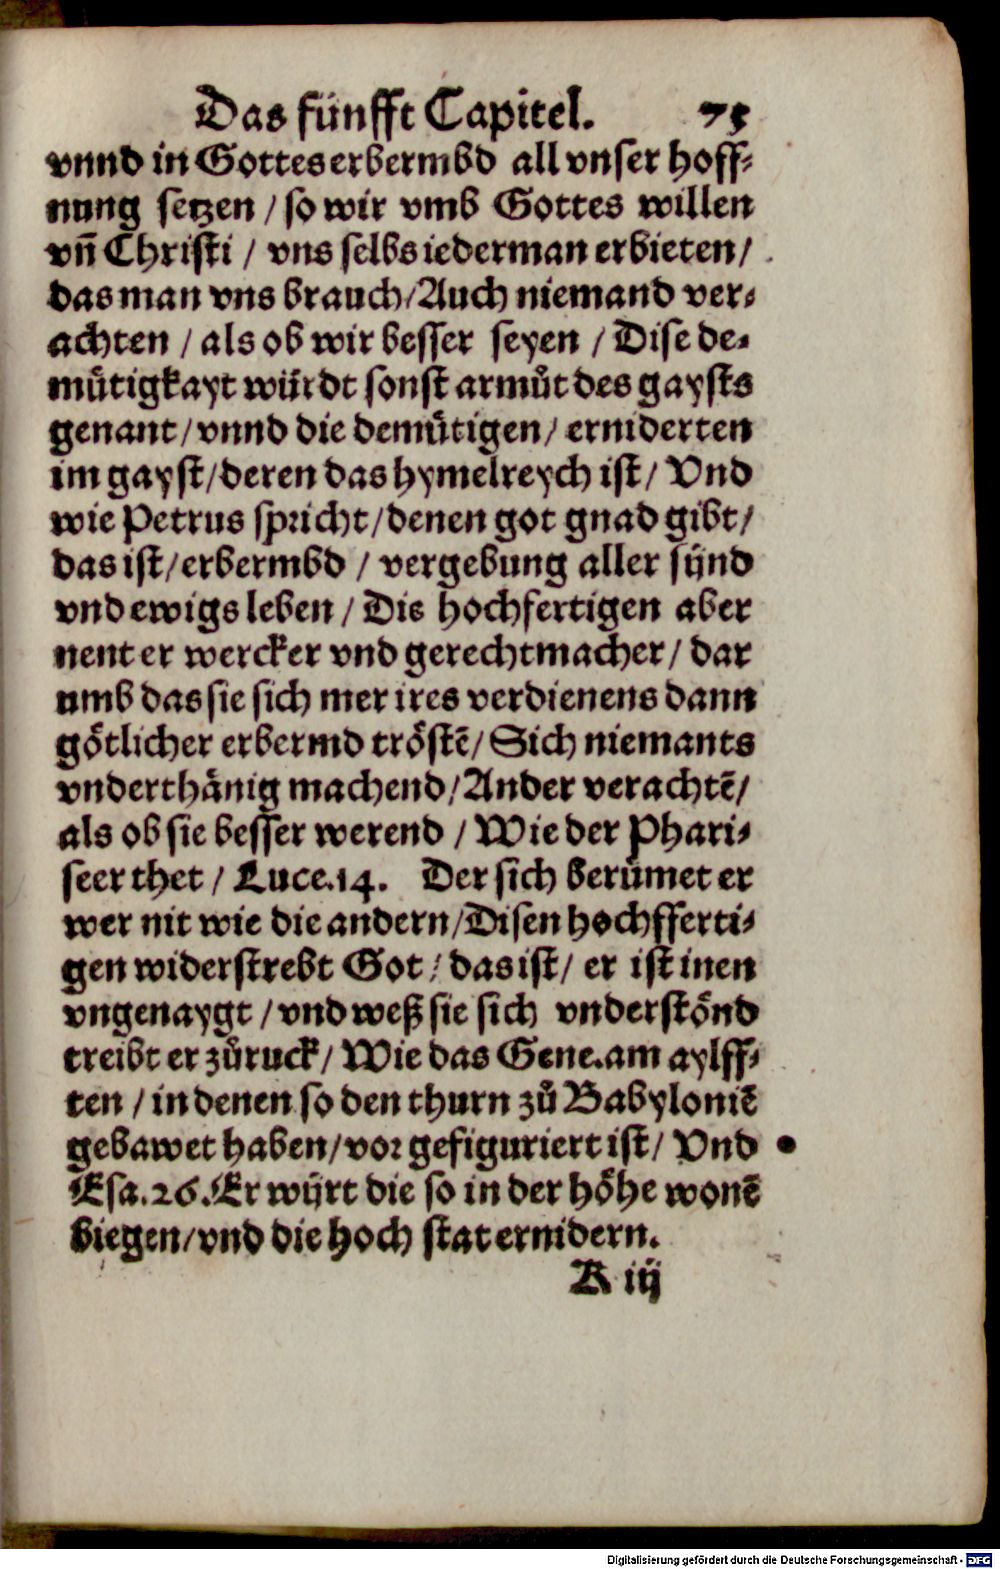 Das fünfft Capitel. 75
vnnd in Gottes erbermbd all vnser hoff⸗
nung setzen / so wir vmb Gottes willen
vñ Christi / vns selbs iederman erbieten /
das man vns brauch / Auch niemand ver⸗
achten / als ob wir besser seyen / Dise de⸗
mütigkayt würdt sonst armůt des gaysts
genant / vnnd die demütigen / erniderten
im gayst / deren das hymelreych ist / Vnd
wie Petrus spricht / denen got gnad gibt /
das ist / erbermbd / vergebung aller sünd
vnd ewigs leben / Die hochfertigen aber
nent er wercker vnd gerechtmacher / dar
umb das sie sich mer ires verdienens dann
götlicher erbermd tröstẽ / Sich niemants
vnderthänig machend / Ander verachtẽ /
als ob sie besser werend / Wie der Phari⸗
seer thet / Luce.14. Der sich berümet er
wer nit wie die andern / Disen hochfferti⸗
gen widerstrebt Got / das ist / er ist inen
vngenaygt / vnd weß sie sich vnderstönd
treibt er zůruck / Wie das Gene.am aylff⸗
ten / in denen so den thurn zů Babyloniẽ
gebawet haben / vor gefiguriert ist / Vnd
Esa.26. Er würt die so in der höhe wonẽ
biegen / vnd die hoch stat ernidern.
K iij
Digitalisierung gefördert durch die Deutsche Forschungsgemeinschaft - DFG